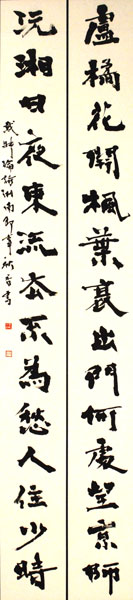 盧橘花開楓葉衰出門何處望京師
沅湘日夜東流去不為愁人住少時
戴叔倫詩湘南即事